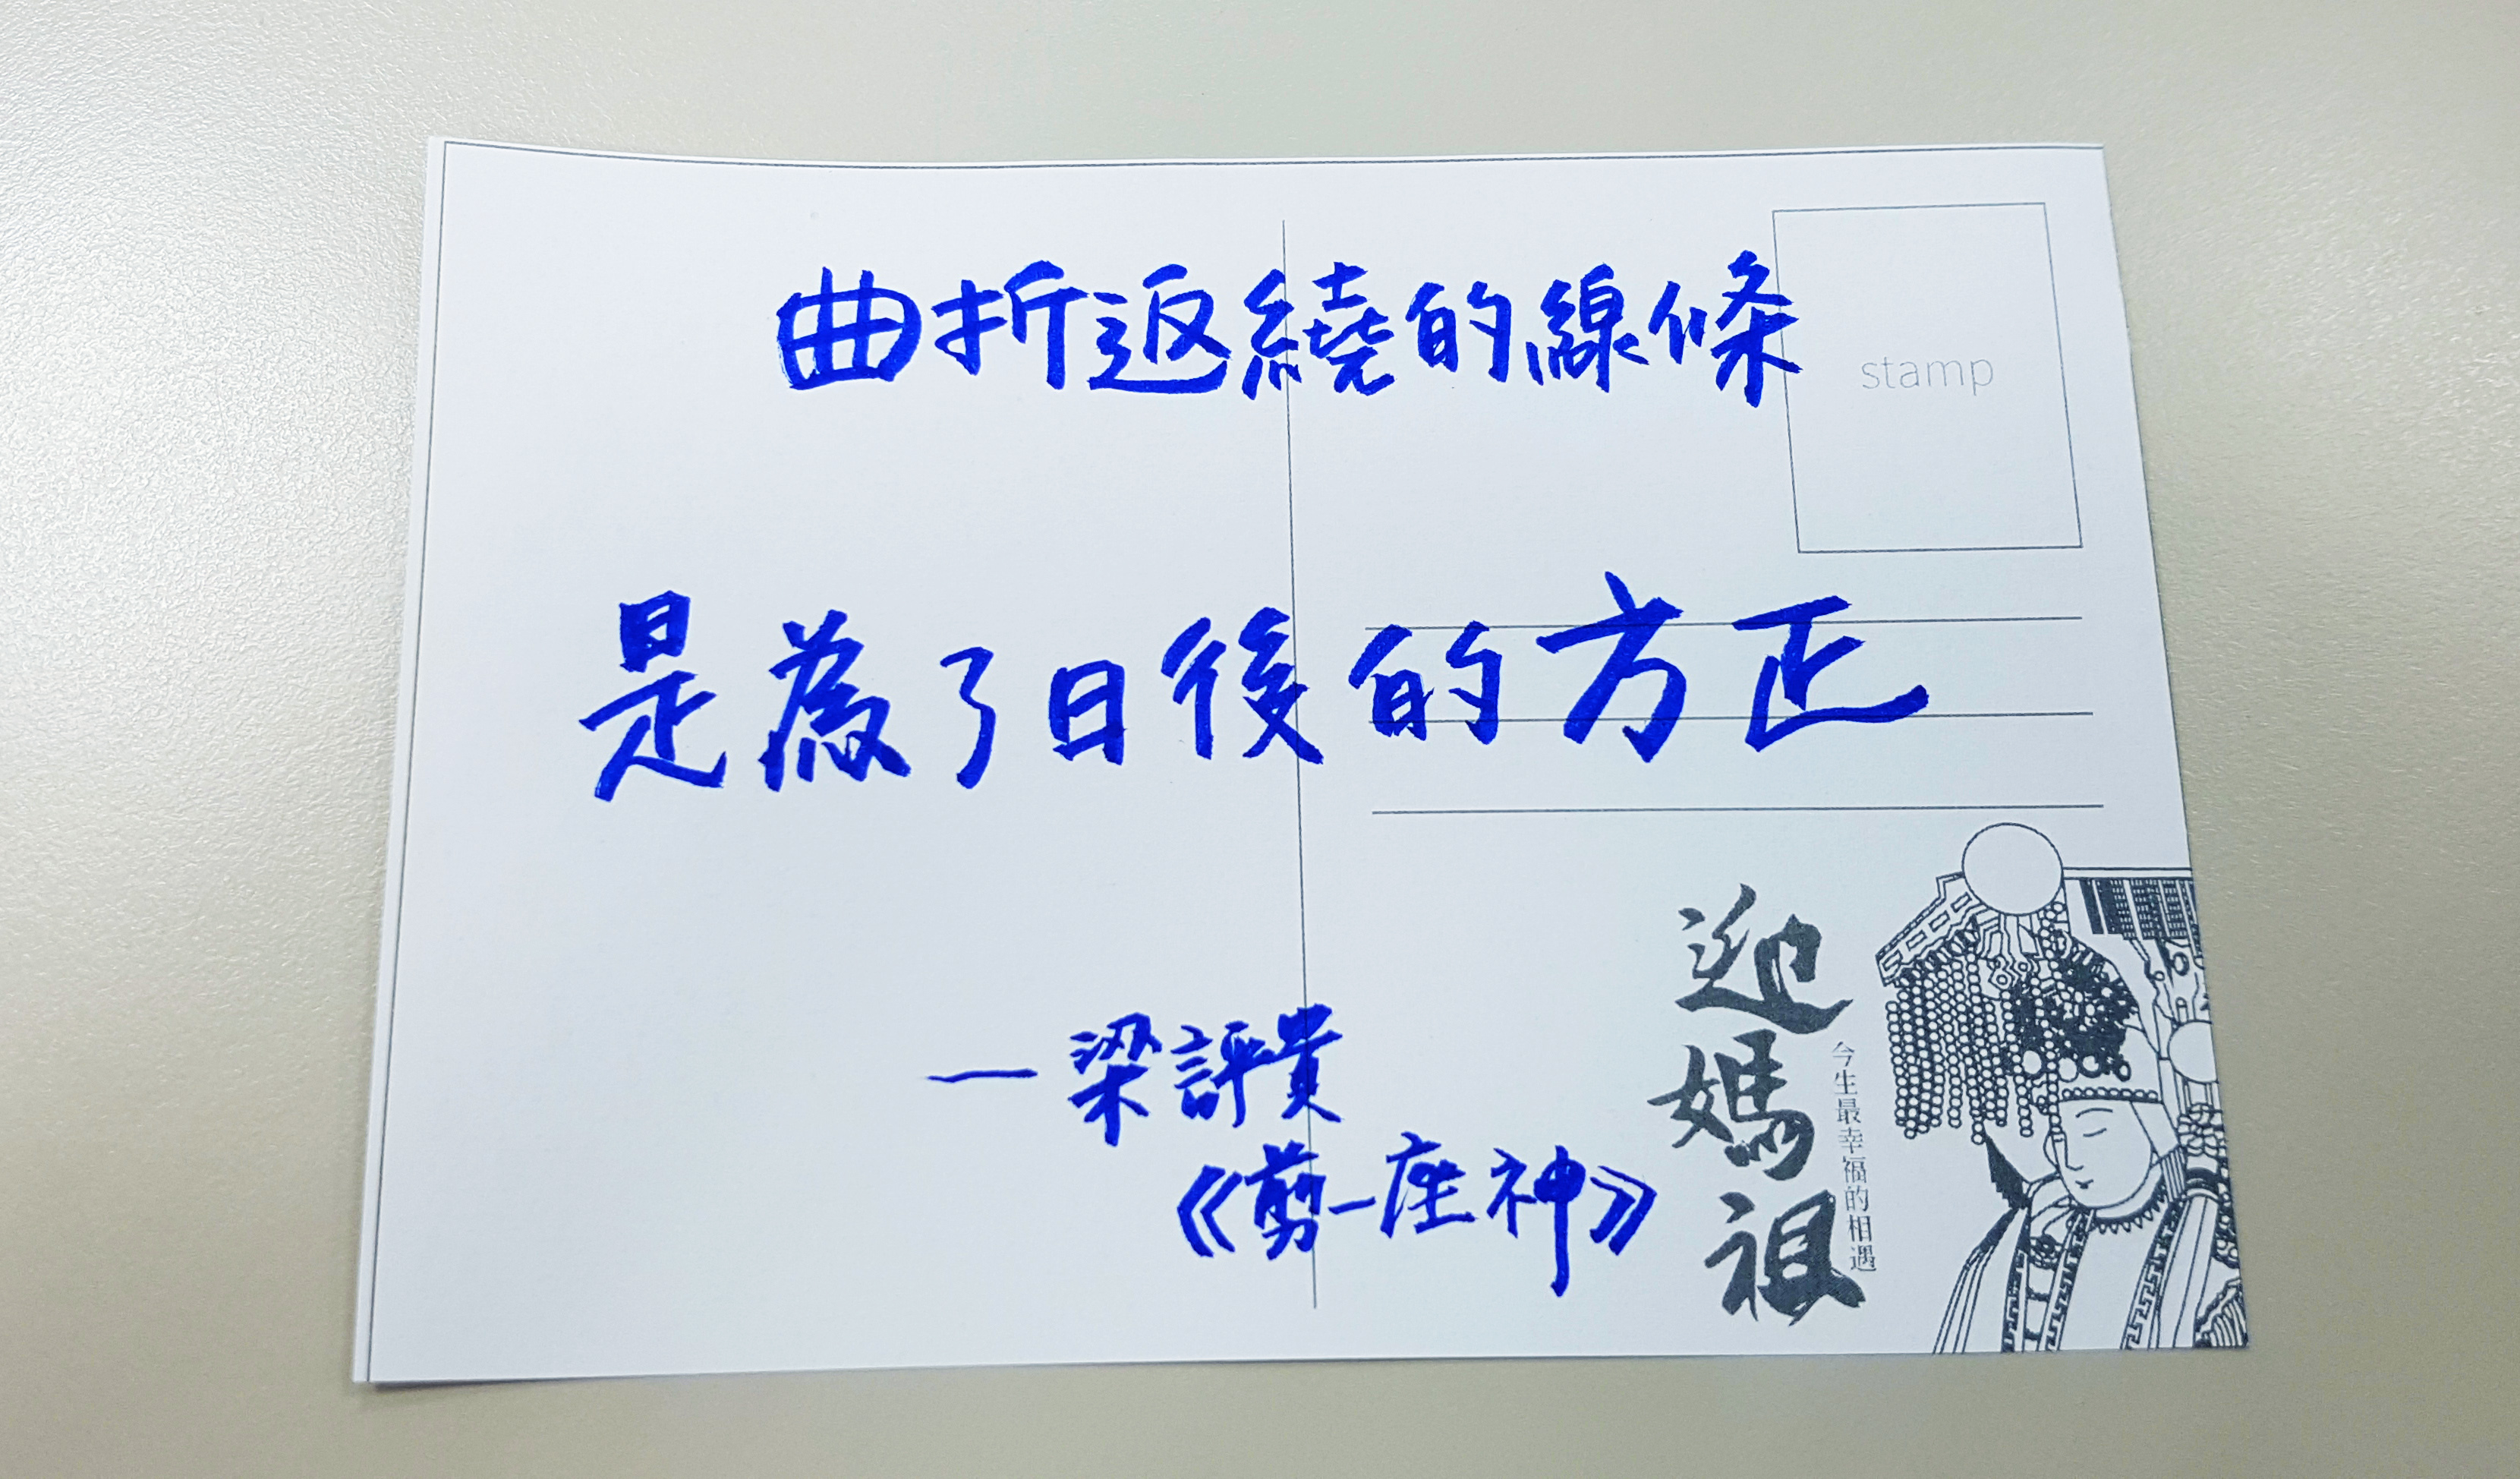 曲折返繞的線條
stamp
是為了日後的方正
—梁評貴
《剪一座神》
迎媽祖
今生最幸福的相遇